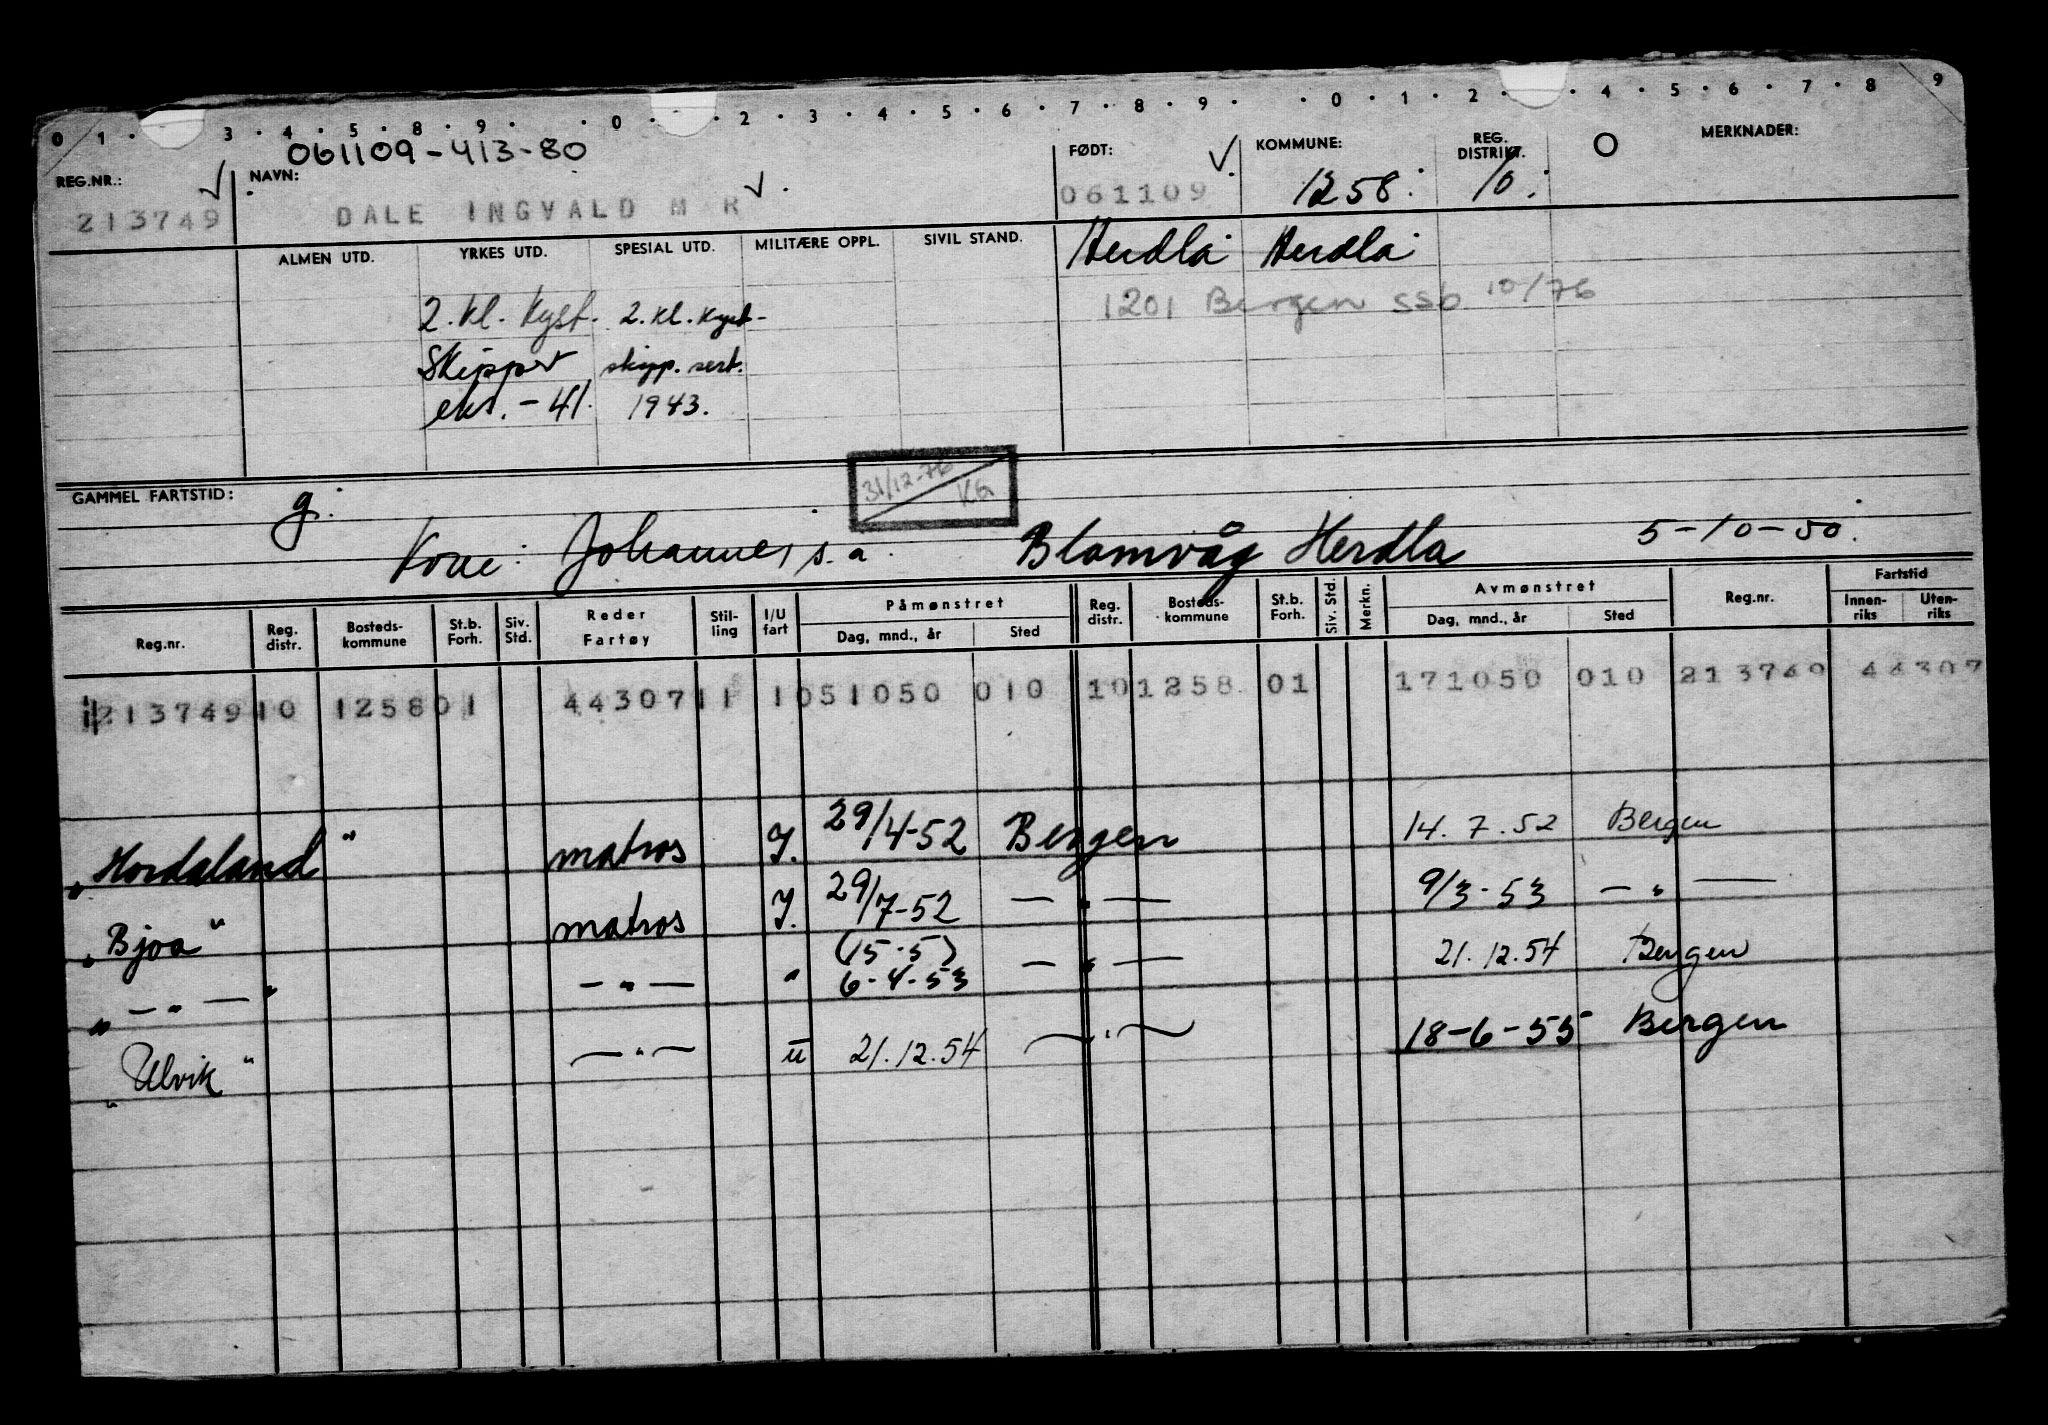 0 1 · 3 · 4 · 5 · 8 · 9 · · 0 · · 2 · 3 · 4 · 5 · 6 · 7 · 8 · 9 · · 0 · 1 · 2 · · 4 · 5 · 6 · 7 · 8 9
061109-413-80
REG.NR.: NAVN: FØDT: KOMMUNE: REG. DISTRIKT. O MERKNADER:
213749 DALE INGVALD M R 061109 1258 10
ALMEN UTD. YRKES UTD. SPESIAL UTD. MILITÆRE OPPL. SIVIL STAND. Herdla Herdla
2. kl. Kyst. 2. kl. kyst- 1201 Bergen ssb 10/76
Skipper skipp. sert.
eks. - 41. 1943.
31/12-76 KG
GAMMEL FARTSTID: g.
Kone: Johanne, s. a. Blomvåg Herdla 5-10-50.
Reg.nr. Reg. distr. Bosteds- kommune St.b. Forh. Siv. Std. Reder Fartøy Stil- ling I/U fart Påmønstret Dag, mnd., år Sted Reg. distr. Bosteds- kommune St.b. Forh. Siv. Std. Merkn. Avmønstret Dag, mnd., år Sted Reg.nr. Fartstid Innen- riks Uten- riks
213749 10 1258 01 443071 1 1 051050 010 10 1258 01 171050 010 213749 44307
"Hordaland" matros I. 29/4-52 Bergen 14. 7. 52 Bergen
"Bjoa" matros I. 29/7-52 — " — 9/3-53 — " —
" — " — " — " — " (15-5) 6-4-53 — " — 21. 12. 54 Bergen
"Ulvik" — " — u 21. 12. 54 — " — 18-6-55 Bergen